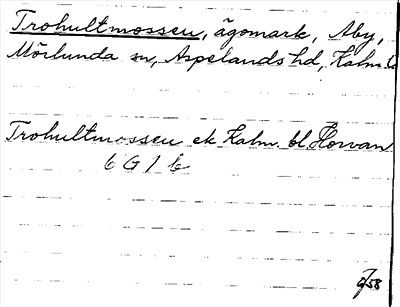 Trohultmossen, ägomark, Åby,
Mörlunda sn, Aspelands hd, Kalm.
Trohultmossen ek Kalm. bl
6 G 1 b
58